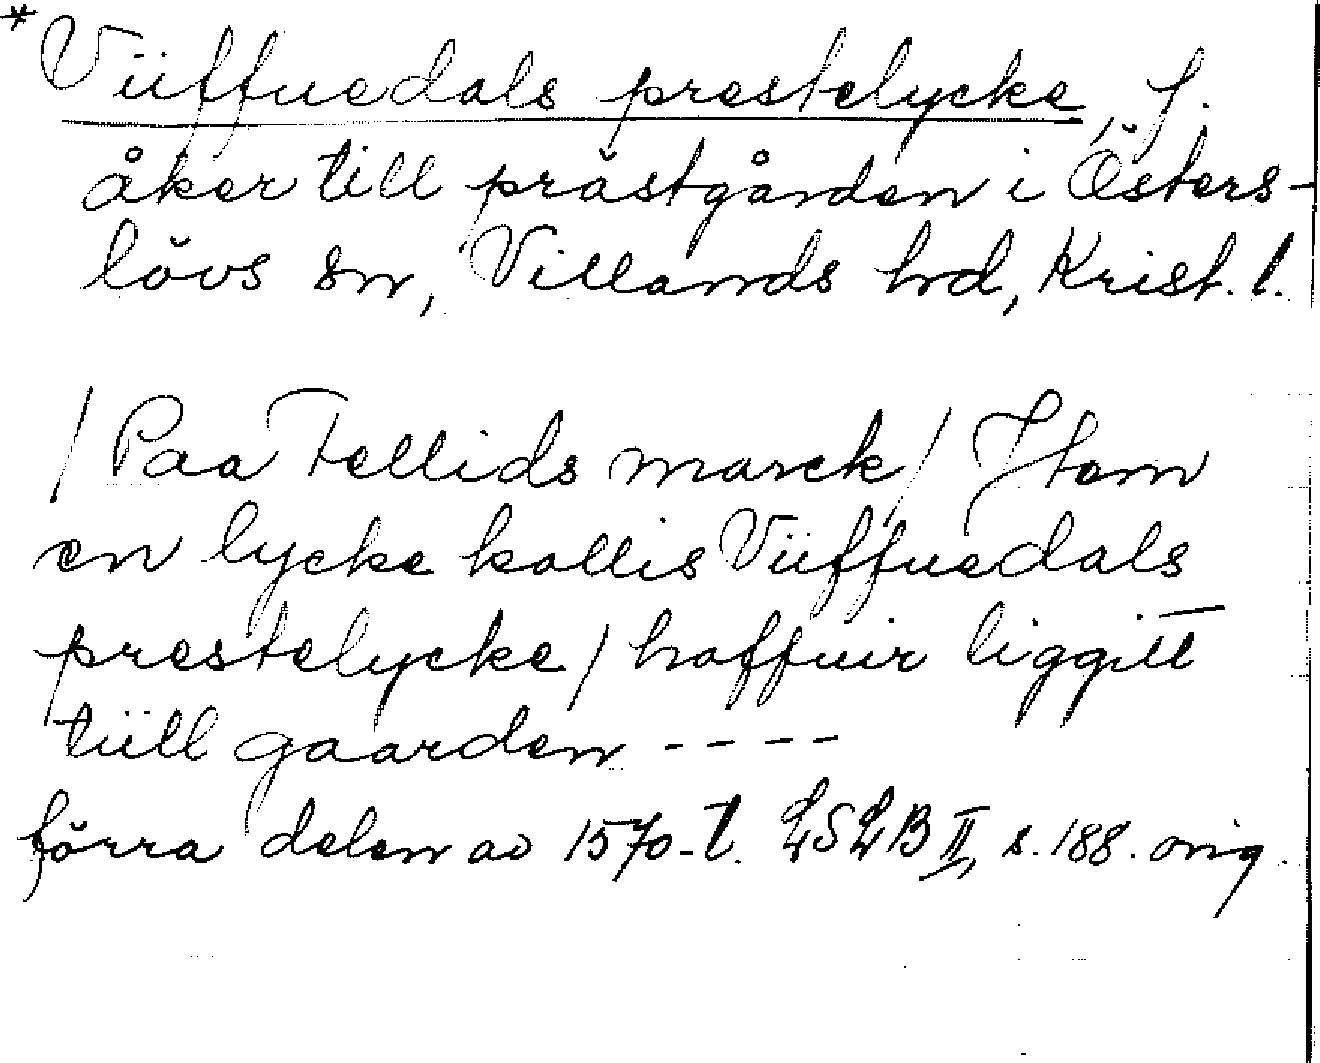 *Vüffuedals prestelycke, f.
åker till prästgården i Östers-
lövs sn, Villands hd, Krist. l.
/Paa Fellids marck/ Item
en lycke kallis Vüffuedals
prestelycke/ haffuir liggitt
tüll gaarden ----
förra delen av 1570-t. LSLB II, s. 188. orig.